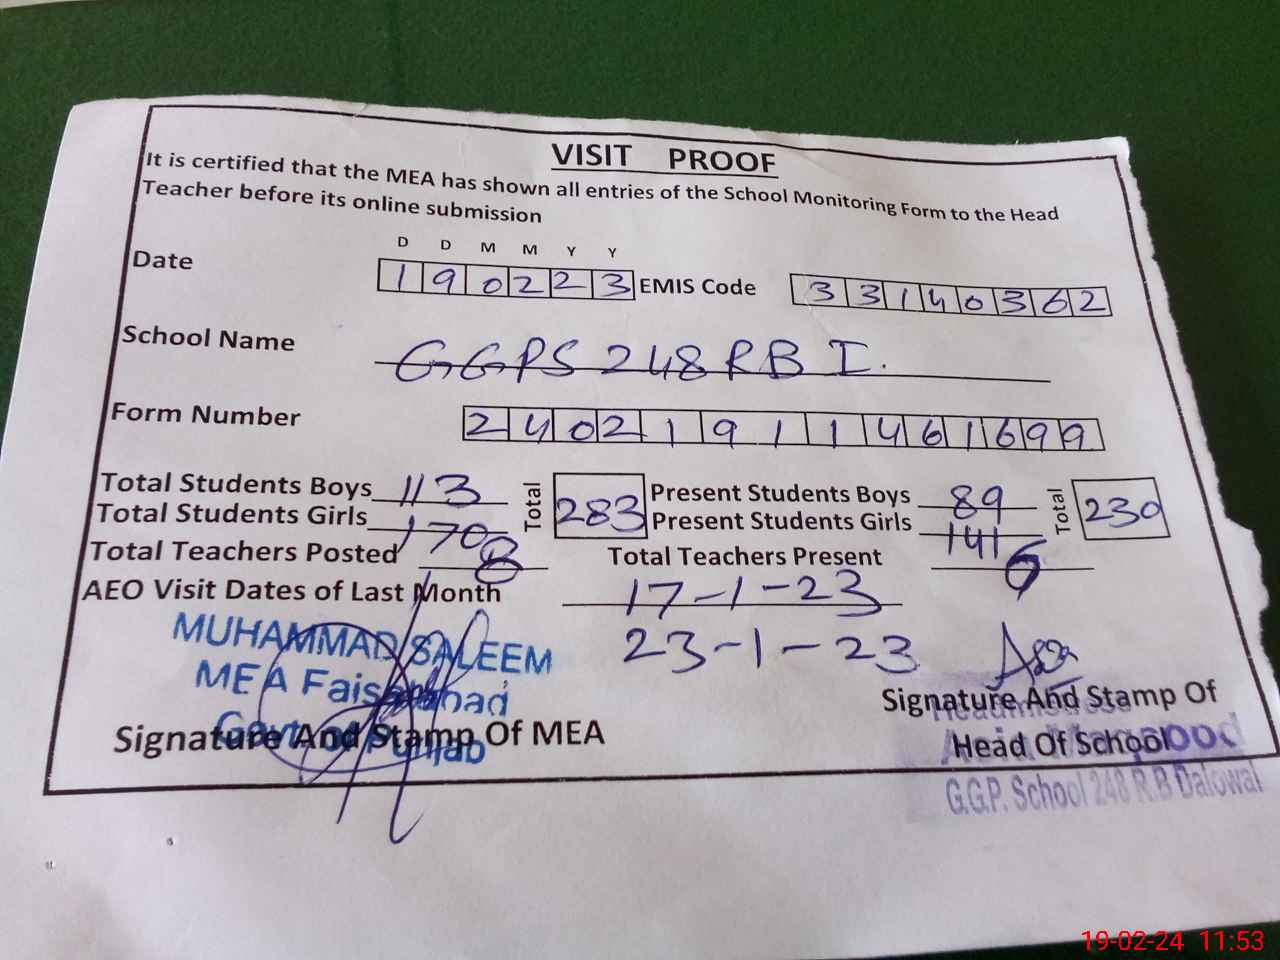 VISIT PROOF
It is certified that the MEA has shown all entries of the School Monitoring Form to the Head
Teacher before its online submission
D D M M Y Y
Date 190223 EMIS Code 33140362
School Name GGPS 248 RB I.
Form Number 24021911461699
Total Students Boys 113 Total 283 Present Students Boys 89 Total 230
Total Students Girls 170 Present Students Girls 141
Total Teachers Posted 8 Total Teachers Present 6
AEO Visit Dates of Last Month 17-1-23
23-1-23
MUHAMMAD SALEEM
MEA Faisalabad
Govt of Punjab
Signature And Stamp Of MEA
Signature And Stamp Of
Headmistress
Head Of School
G.G.P. School 248 R.B Dalowal
19-02-24 11:53